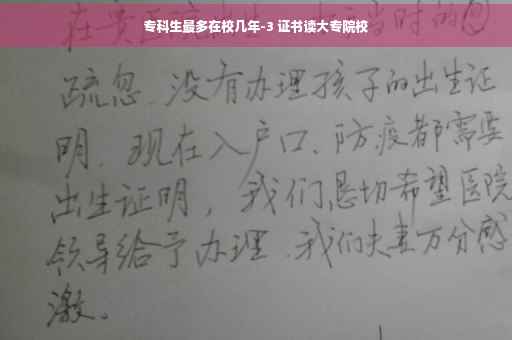 专科生最多在校几年-3 证书读大专院校
在 当时的
疏忽、没有办理孩子的出生证
明、现在入户口、防疫都需要
出生证明，我们恳切希望医院
领导给予办理、我们夫妻万分感
激。